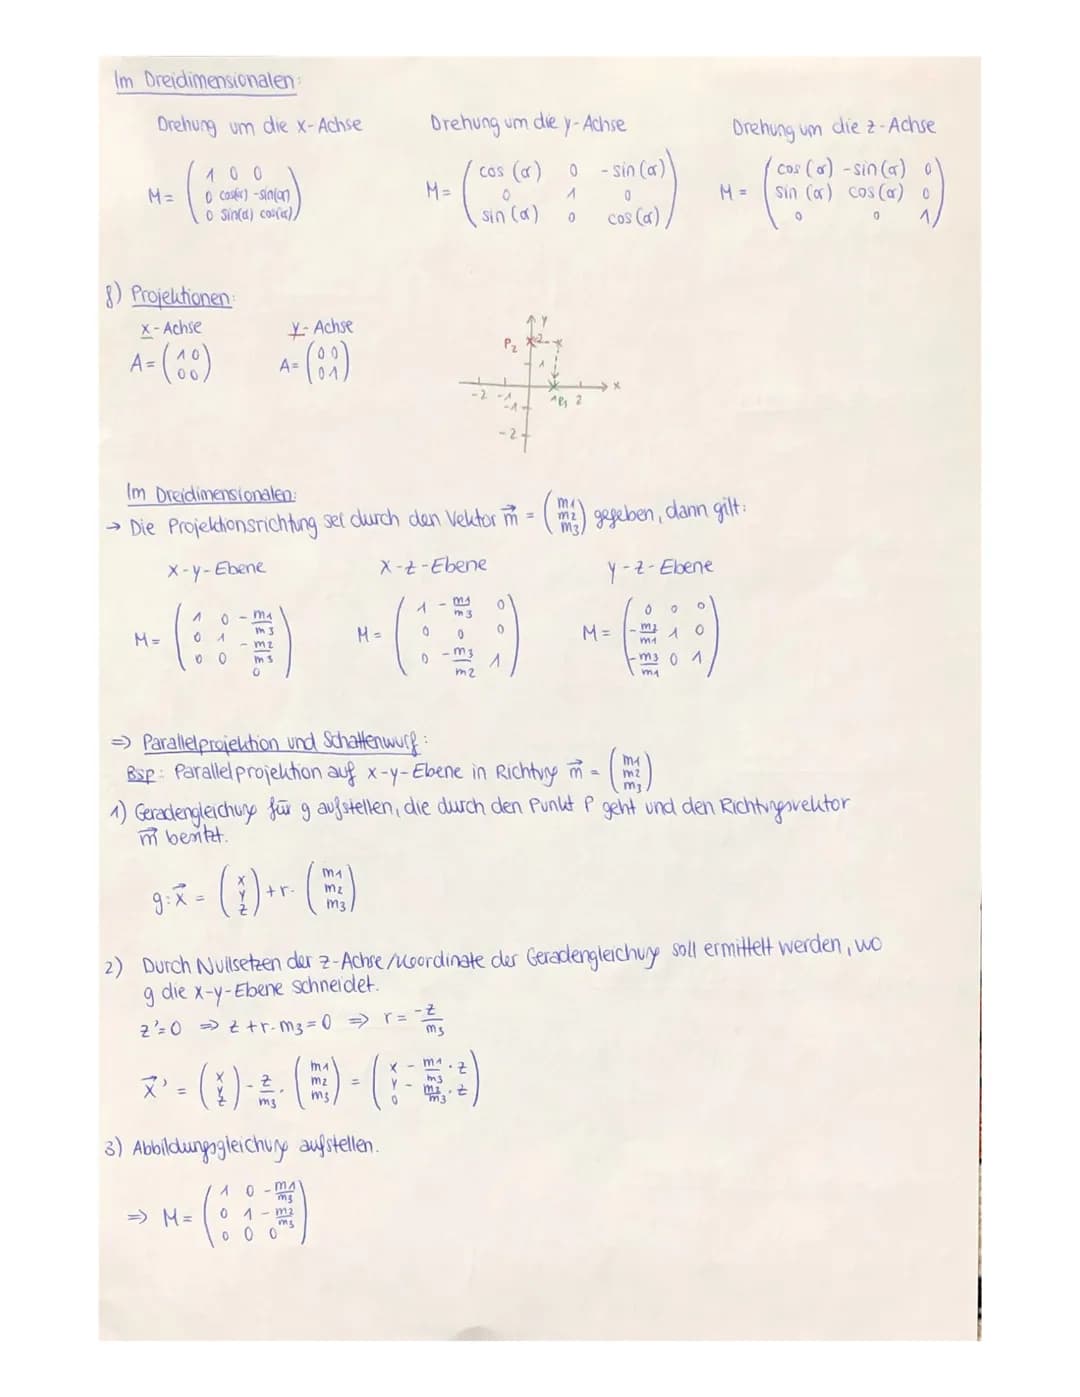 Im Dreidimensionalen:
Drehung um die x-Achse    Drehung um die y-Achse    Drehung um die z-Achse
M = ( 1 0 0 ; 0 cos(α) -sin(α) ; 0 sin(α) cos(α) )    M = ( cos (α) 0 - sin (α) ; 0 1 0 ; sin (α) 0 cos (α) )    M = ( cos (α) -sin (α) 0 ; sin (α) cos (α) 0 ; 0 0 1 )
8) Projektionen:
x-Achse    y-Achse
A = ( 1 0 ; 0 0 )    A = ( 0 0 ; 0 1 )
y
P2 2
1
-2 -1 1 P1 2 x
-1
-2
Im Dreidimensionalen:
→ Die Projektionsrichtung sei durch den Vektor m⃗ = ( m1 ; m2 ; m3 ) gegeben, dann gilt:
x-y-Ebene    x-z-Ebene    y-z-Ebene
M = ( 1 0 -m1/m3 ; 0 1 -m2/m3 ; 0 0 0 )    M = ( 1 -m1/m3 0 ; 0 0 0 ; 0 -m3/m2 1 )    M = ( 0 0 0 ; -m2/m1 1 0 ; -m3/m1 0 1 )
⇒ Parallelprojektion und Schattenwurf:
Bsp: Parallelprojektion auf x-y-Ebene in Richtung m⃗ = ( m1 ; m2 ; m3 )
1) Geradengleichung für g aufstellen, die durch den Punkt P geht und den Richtungsvektor
m⃗ besitzt.
g: x⃗ = ( x ; y ; z ) + r · ( m1 ; m2 ; m3 )
2) Durch Nullsetzen der z-Achse/Koordinate der Geradengleichung soll ermittelt werden, wo
g die x-y-Ebene schneidet.
z'=0 ⇒ z + r · m3 = 0 ⇒ r = -z/m3
x⃗' = ( x ; y ; z ) - z/m3 · ( m1 ; m2 ; m3 ) = ( x - m1/m3 · z ; y - m2/m3 · z ; 0 )
3) Abbildungsgleichung aufstellen.
⇒ M = ( 1 0 -m1/m3 ; 0 1 -m2/m3 ; 0 0 0 )